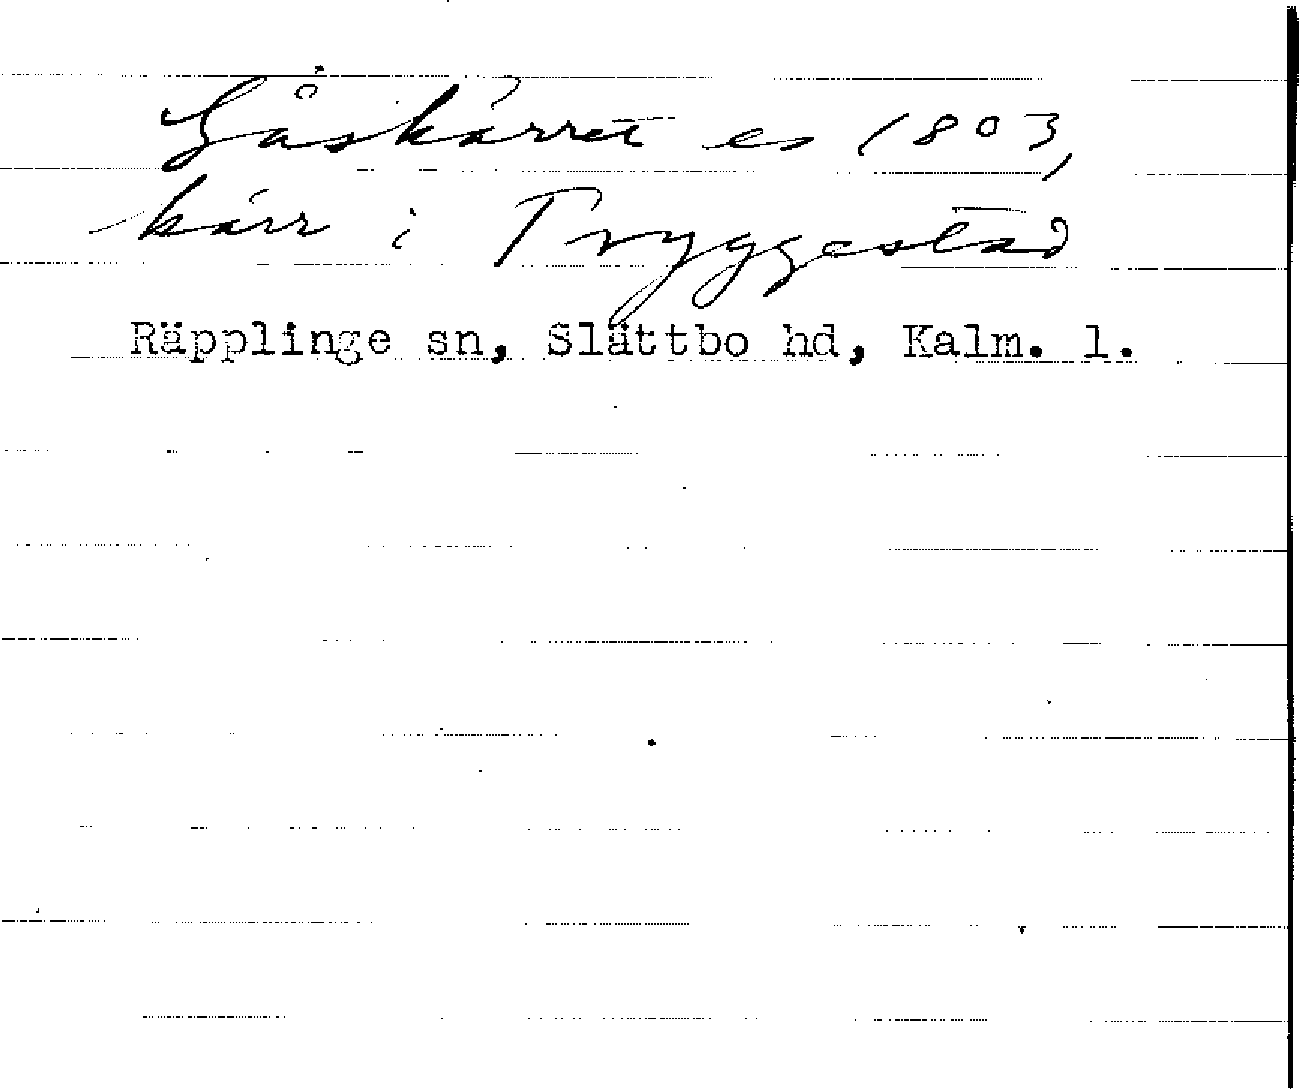 Gåskärret es 1803,
kärr i Tryggestad
Räpplinge sn, Slättbo hd, Kalm. l.